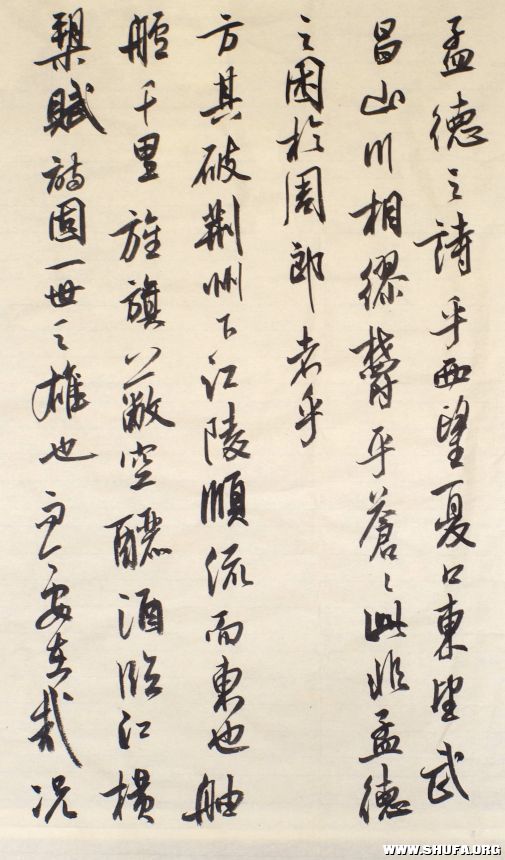 孟德之詩乎西望夏口東望武
昌山川相繆鬱乎蒼〻此非孟德
之困於周郎者乎
方其破荆州下江陵順流而東也舳
艫千里旌旗蔽空釃酒臨江橫
槊賦詩固一世之雄也而今安在哉况
WWW.SHUFA.ORG